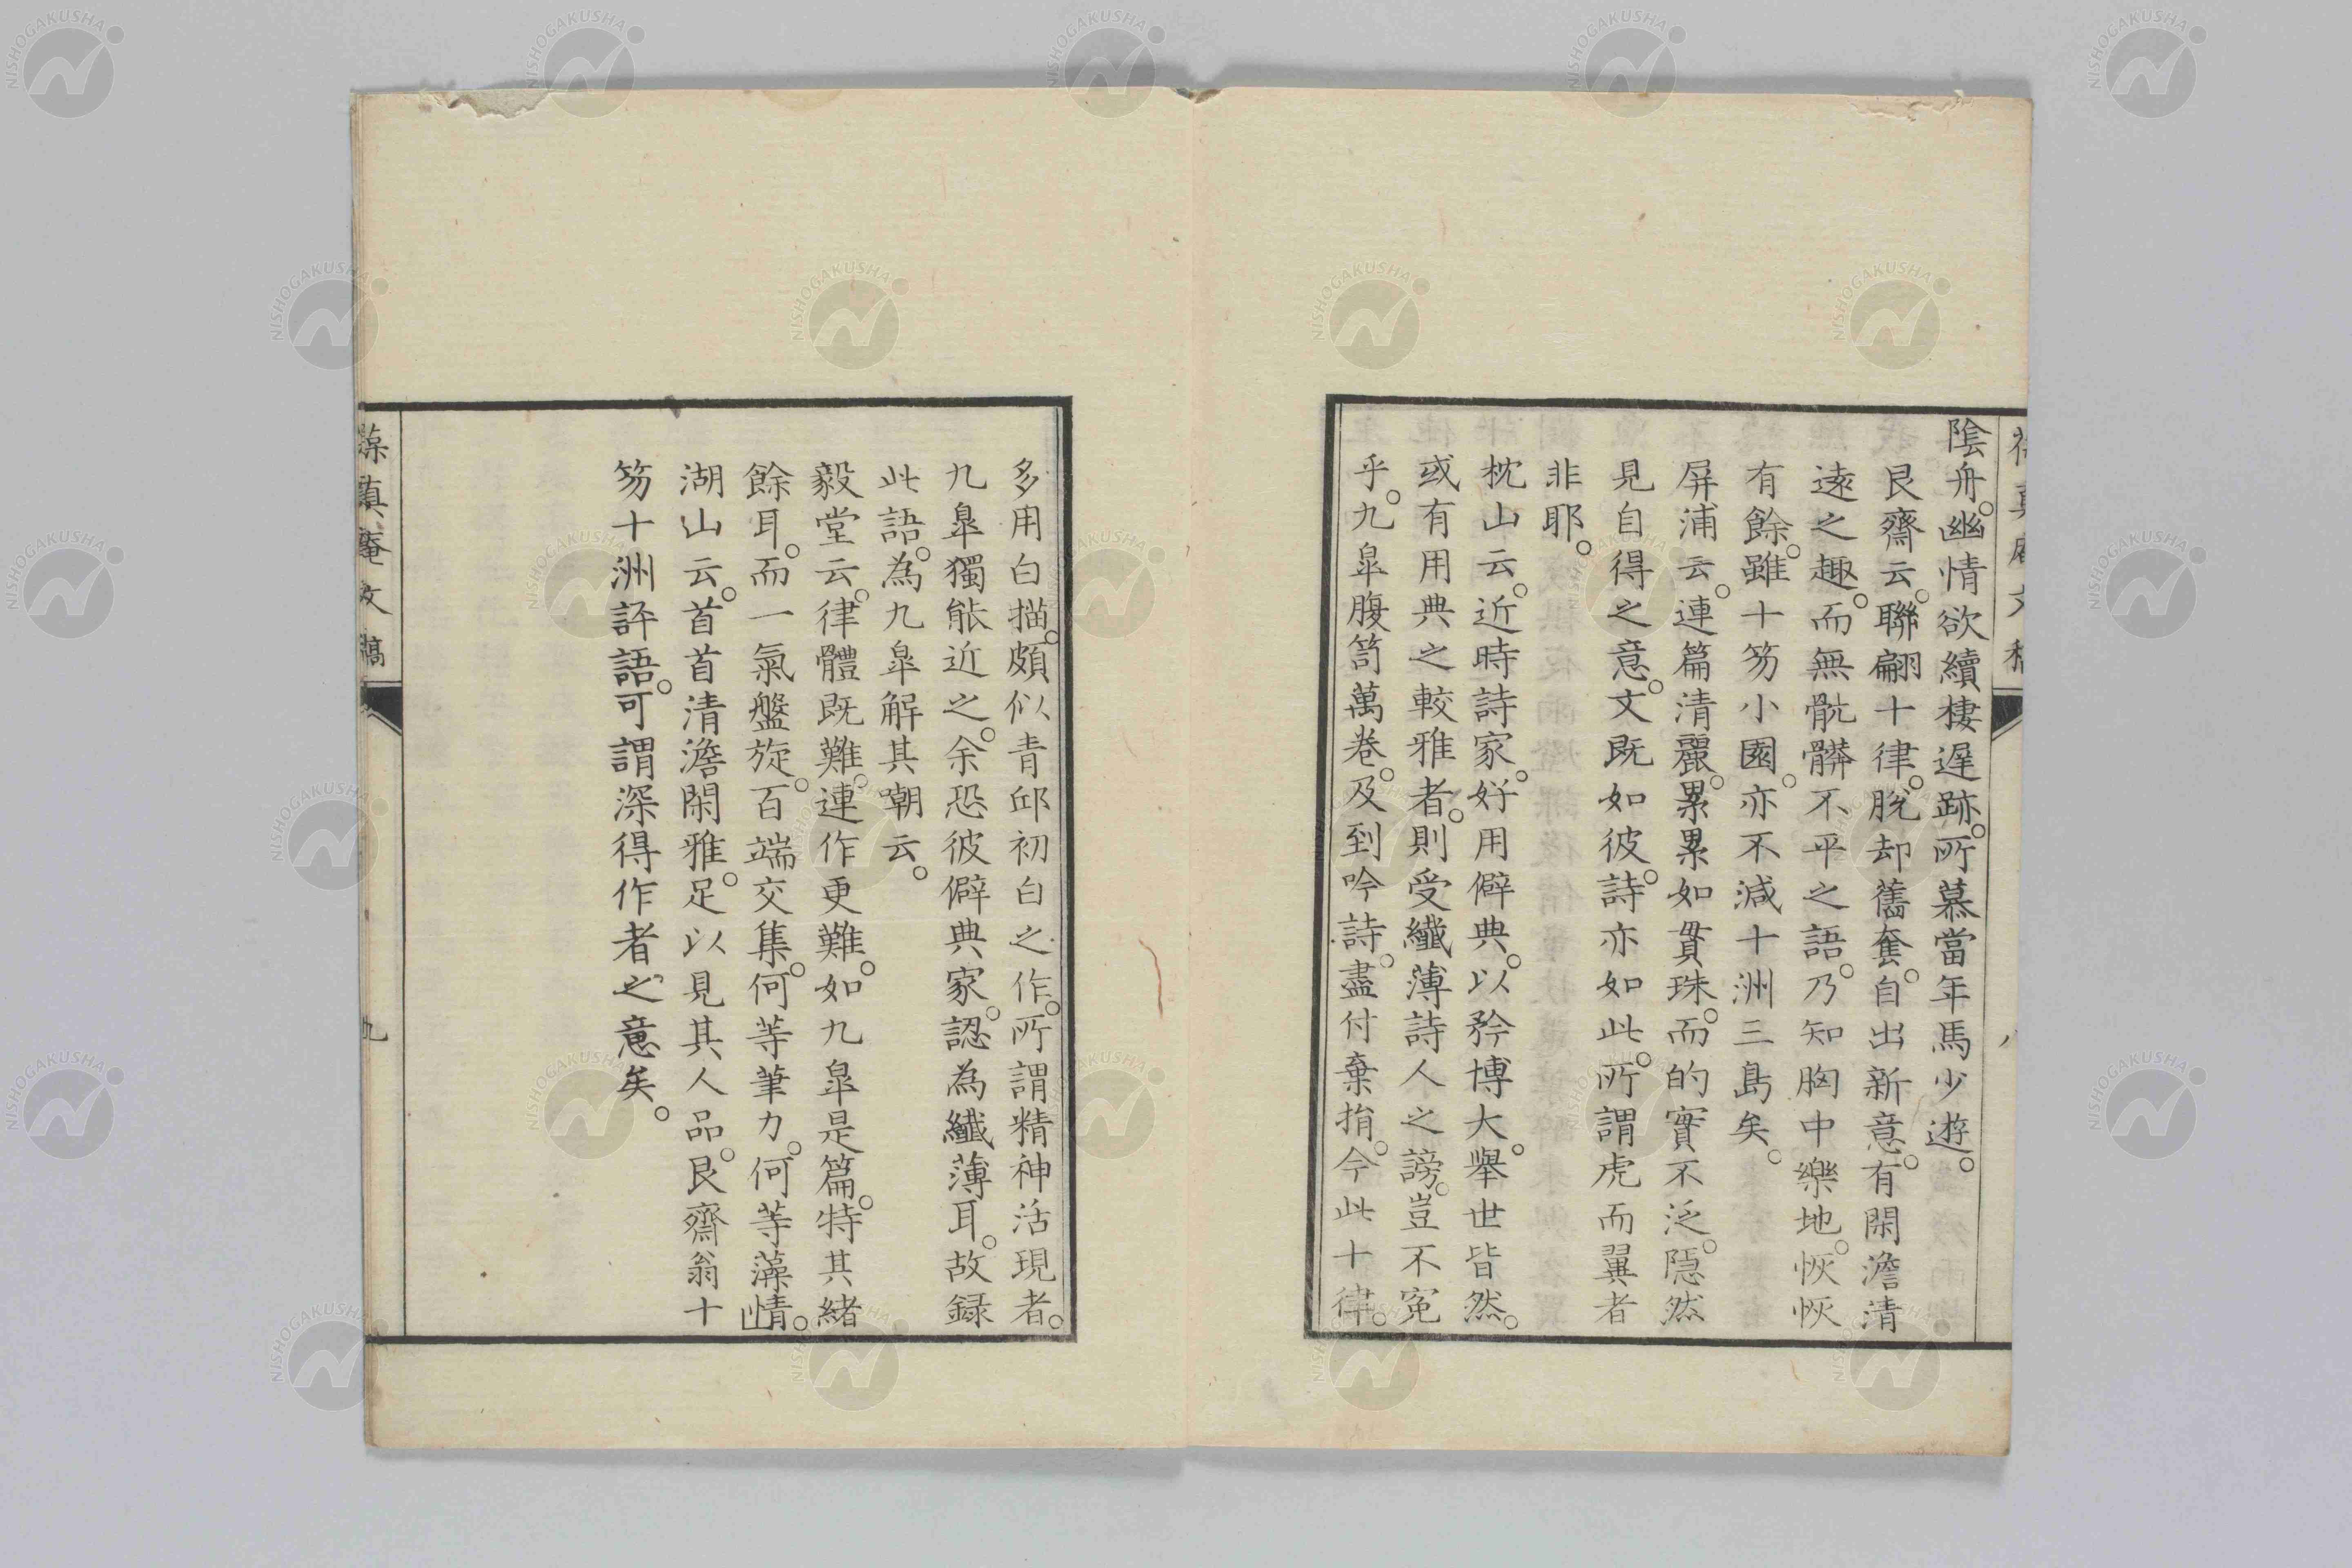 陰舟。幽情欲續棲遲跡。所慕當年馬少遊。
艮齋云。聯翩十律。脫却舊套。自出新意。有閑澹清
遠之趣。而無骯髒不平之語。乃知胸中樂地。恢恢
有餘。雖十笏小園。亦不減十洲三島矣。
屏浦云。連篇清麗。累累如貫珠。而的實不泛。隱然
見自得之意。文既如彼。詩亦如此。所謂虎而翼者
非耶。
枕山云。近時詩家。好用僻典。以矜博大。舉世皆然。
或有用典之較雅者。則受纖薄詩人之謗。豈不寃
乎。九皐腹笥萬卷。及到吟詩。盡付棄捐。今此十律。
多用白描。頗似青邱初白之作。所謂精神活現者。
九皐獨能近之。余恐彼僻典家。認為纖薄耳。故録
此語。為九皐解其嘲云。
毅堂云。律體既難。連作更難。如九皐是篇。特其緒
餘耳。而一氣盤旋。百端交集。何等筆力。何等藻情。
湖山云。首首清澹閑雅。足以見其人品。艮齋翁十
笏十洲評語。可謂深得作者之意矣。
文稿
九
NISHOGAKUSHA